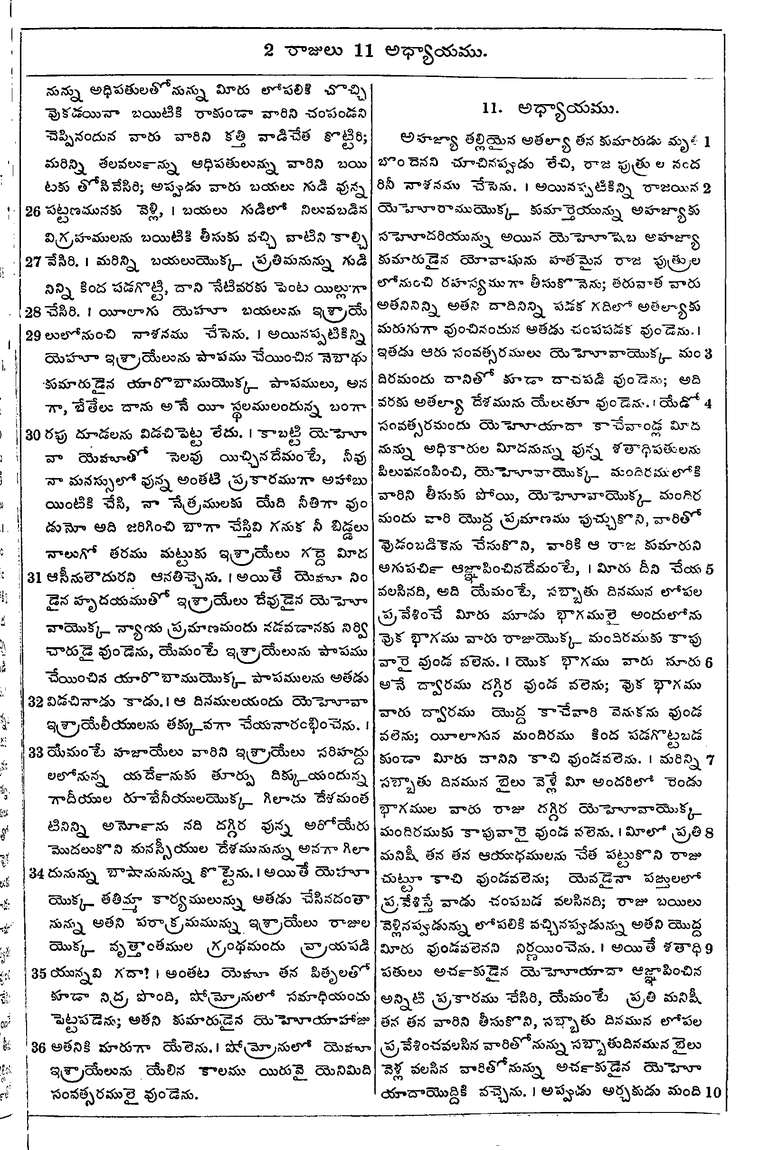 2 రాజులు 11 అధ్యాయము.
నున్ను అధిపతులతోనున్ను మీరు లోపలికి చొచ్చి
వొకడయినా బయిటికి రాకుండా వారిని చంపండని
చెప్పినందున వారు వారిని కత్తి వాడిచేత కొట్టిరి;
మరిన్ని తలవర్లున్ను అధిపతులున్ను వారిని బయి
టకు తోసివేసిరి; అప్పుడు వారు బయలు గుడి వున్న
26 పట్టణమునకు వెళ్లి, । బయలు గుడిలో నిలువబడిన
విగ్రహములను బయిటికి తీసుకు వచ్చి వాటిని కాల్చి
27 వేసిరి. । మరిన్ని బయలుయొక్క ప్రతిమనున్ను గుడి
నిన్ని కింద పడగొట్టి, దాని నేటివరకు పెంట యిల్లుగా
28 చేసిరి. । యీలాగు యెహూ బయలును ఇశ్రాయే
29 లులోనుంచి నాశనము చేసెను. । అయినప్పటికిన్ని
యెహూ ఇశ్రాయేలును పాపము చేయించిన నెబాథు
కుమారుడైన యారొబాముయొక్క పాపములు, అన
గా, బేతేలు దాను అనే యీ స్థలములందున్న బంగా
30 రపు దూడలను విడచిపెట్ట లేదు. । కాబట్టి యెహో
వా యెహూతో సెలవు యిచ్చినదేమంటే, నీవు
నా మనస్సులో వున్న అంతటి ప్రకారముగా అహాబు
యింటికి చేసి, నా నేత్రములకు యేది నీతిగా వుం
డునో అది జరిగించి బాగా చేస్తివి గనుక నీ బిడ్డలు
నాలుగో తరము మట్టుకు ఇశ్రాయేలు గద్దె మీద
31 ఆసీనులౌదురని ఆనతిచ్చెను. । అయితే యెహూ నిం
డైన హృదయముతో ఇశ్రాయేలు దేవుడైన యెహో
వాయొక్క న్యాయ ప్రమాణమందు నడవడానకు నిర్వి
చారుడై వుండెను, యేమంటే ఇశ్రాయేలును పాపము
చేయించిన యారొబాముయొక్క పాపములను అతడు
32 విడచినాడు కాడు. । ఆ దినములయందు యెహోవా
ఇశ్రాయేలీయులను తక్కువగా చేయనారంభించెను. ।
33 యేమంటే హజాయేలు వారిని ఇశ్రాయేలు సరిహద్దు
లలోనున్న యర్దేనుకు తూర్పు దిక్కుయందున్న
గాదీయుల రూబేనీయులయొక్క గిలాదు దేశమంత
టినిన్ని అర్నోను నది దగ్గిర వున్న అరోయేరు
మొదలుకొని మనస్సీయుల దేశమునున్ను అనగా గిలా
34 దునున్ను బాషానునున్ను కొట్టెను. । అయితే యెహూ
యొక్క తతిమ్మా కార్యములున్ను అతడు చేసినదంతా
నున్ను అతని పరాక్రమమున్ను ఇశ్రాయేలు రాజుల
యొక్క వృత్తాంతముల గ్రంథమందు వ్రాయపడి
35 యున్నవి గదా? । అంతట యెహూ తన పితృలతో
కూడా నిద్ర పొంది, షోమ్రోనులో సమాధియందు
పెట్టపడెను; అతని కుమారుడైన యెహోయాహాజు
36 అతనికి మారుగా యేలెను. । షోమ్రోనులో యెహూ
ఇశ్రాయేలును యేలిన కాలము యిరువై యెనిమిది
సంవత్సరములై వుండెను.
11. అధ్యాయము.
అహజ్యా తల్లియైన అతల్యా తన కుమారుడు మృతి 1
బొందెనని చూచినప్పుడు లేచి, రాజ పుత్రుల నంద
రినీ నాశనము చేసెను. । అయినప్పటికిన్ని రాజయిన 2
యెహోరాముయొక్క కుమార్తెయున్ను అహజ్యాకు
సహోదరియున్ను అయిన యెహోషెబ అహజ్యా
కుమారుడైన యోవాషును హతమైన రాజ పుత్రుల
లోనుంచి రహస్యముగా తీసుకొనెను; తరువాత వారు
అతనినిన్ని అతని దాదినిన్ని పడక గదిలో అతల్యాకు
మరుగుగా వుంచినందున అతడు చంపపడక వుండెను. ।
ఇతడు ఆరు సంవత్సరములు యెహోవాయొక్క మం 3
దిరమందు దానితో కూడా దాచపడి వుండెను; అది
వరకు అతల్యా దేశమును యేలుతూ వుండెను. । యేడో 4
సంవత్సరమందు యెహోయాదా కాచేవాండ్ల మీద
నున్ను అధికారుల మీదనున్ను వున్న శతాధిపతులను
పిలువనంపించి, యెహోవాయొక్క మందిరములోకి
వారిని తీసుకు పోయి, యెహోవాయొక్క మందిర
మందు వారి యొద్ద ప్రమాణము పుచ్చుకొని, వారితో
వుడంబడికెను చేసుకొని, వారికి ఆ రాజ కుమారుని
అగుపర్చి ఆజ్ఞాపించినదేమంటే, । మీరు దీని చేయ 5
వలసినది, అది యేమంటే, సబ్బాతు దినమున లోపల
ప్రవేశించే మీరు మూడు భాగములై అందులోను
వొక భాగము వారు రాజుయొక్క మందిరముకు కాపు
వారై వుండ వలెను. । యొక భాగము వారు సూరు 6
అనే ద్వారము దగ్గిర వుండ వలెను; వొక భాగము
వారు ద్వారము యొద్ద కాచేవారి వెనుకను వుండ
వలెను; యీలాగున మందిరము కింద పడగొట్టబడ
కుండా మీరు దానిని కాచి వుండవలెను. । మరిన్ని 7
సబ్బాతు దినమున బైలు వెళ్లే మీ అందరిలో రెండు
భాగముల వారు రాజు దగ్గిర యెహోవాయొక్క
మందిరముకు కాపువారై వుండ వలెను. । మీలో ప్రతి 8
మనిషీ తన తన ఆయుధములను చేత పట్టుకొని రాజు
చుట్టూ కాచి వుండవలెను; యెవడైనా పఙ్తులలో
ప్రవేశిస్తే వాడు చంపబడ వలసినది; రాజు బయిలు
వెళ్లినప్పుడున్ను లోపలికి వచ్చినప్పుడున్ను అతని యొద్ద
మీరు వుండవలెనని నిర్ణయించెను. । అయితే శతాధి 9
పతులు అర్చకుడైన యెహోయాదా ఆజ్ఞాపించిన
అన్నిటి ప్రకారము చేసిరి, యేమంటే ప్రతి మనిషీ
తన తన వారిని తీసుకొని, సబ్బాతు దినమున లోపల
ప్రవేశించవలసిన వారితోనున్ను సబ్బాతుదినమున బైలు
వెళ్ల వలసిన వారితోనున్ను అర్చకుడైన యెహో
యాదాయొద్దికి వచ్చెను. । అప్పుడు అర్చకుడు మంది 10